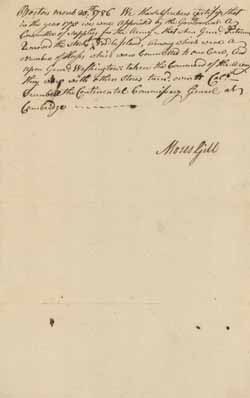 Boston March 20, 1786 We the Subscribers certify, that
in the year 1775 we were appointed by the Government a
Committee of Supplies for the Army, that when Genl Putnam
moved the Stock off Island, among which were a
number of Sheep, which were Committed to our Care, And
upon Genl Washingtons taken the Command of the Army
they were with the other Stores turned over to Colo
Trumbull the Continental Commissary General at
Cambridge
Moses Gill